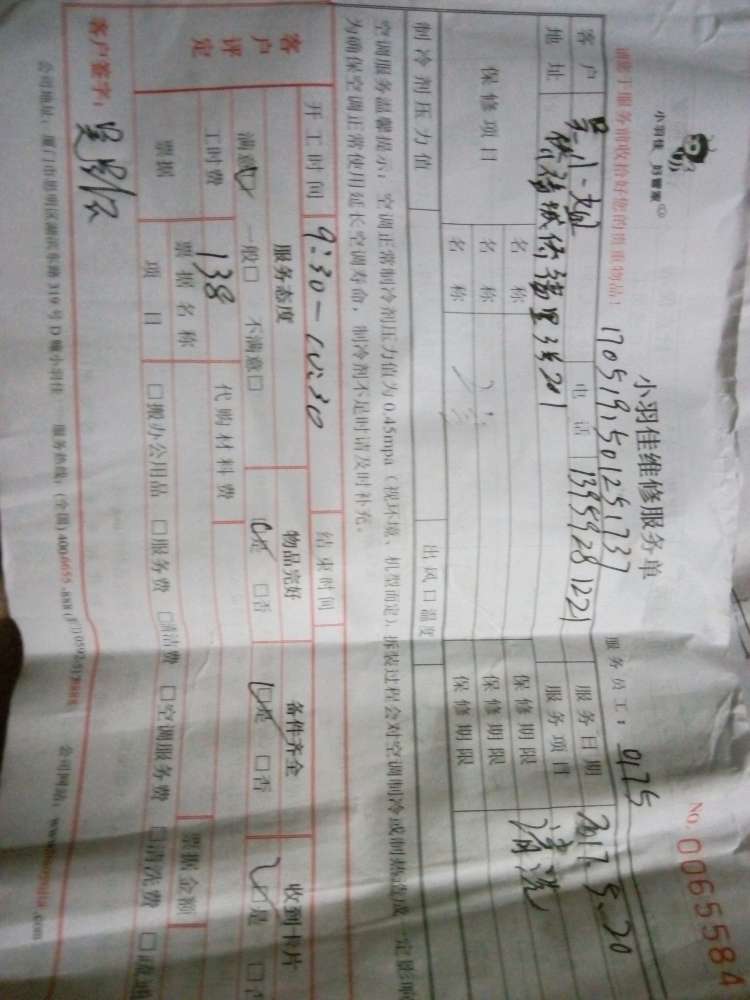 No. 0065584
小羽佳 好管家
小羽佳维修服务单
请您于服务前收拾好您的贵重物品!
1705191501251737
服务员工: 0175
客户
电话 13959281221
服务日期 2017.5.20
地址 侨福城侨福里 201
服务项目 清洗
保修项目
名称 保修期限
名称 保修期限
名称 保修期限
制冷剂压力值 出风口温度
空调服务温馨提示:空调正常制冷剂压力值为0.45mpa(视环境、机型而定),拆装过程会对空调制冷或制热造成一定影响
为确保空调正常使用延长空调寿命,制冷剂不足时请及时补充。
开工时间 9:30-10:30 结束时间
客户评定
服务态度 物品完好 备件齐全 收到卡片
满意□ 一般□ 不满意□ □是 □否 □是 □否 □是
工时费 138 代购材料费 票据金额
票据 票据名称
项目 □搬办公用品 □服务费 □清洁费 □空调服务费 □清洗费
客户签字:
公司地址:厦门市思明区湖滨东路319号D幢小羽佳 服务热线:(全国)4006655-888 公司网站: